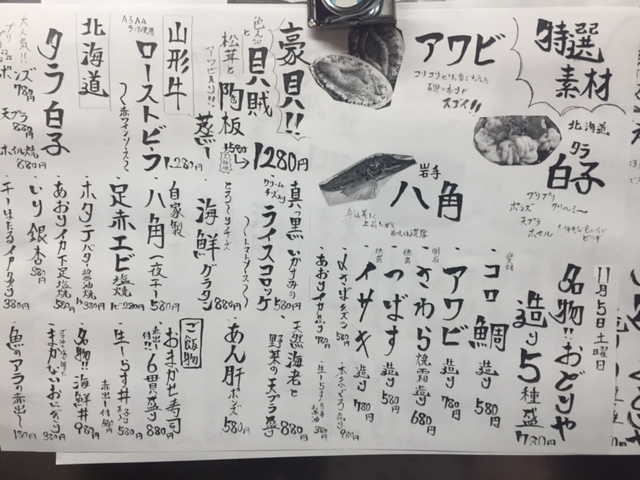 特選
素材
アワビ
北海道
タラ
白子
プリプリ
クリーミー
ポンズ
天プラ
ホイル
岩手
八角
豪貝!!
貝賊
松茸と
アワビ入り!!
陶板
蒸し
1580
1280円
山形牛
ローストビーフ
〜赤ワインソース〜
1.280円
北海道
タラ白子
大人気!!
ポンズ
780円
天プラ
880円
ホイル焼
880円
11月5日土曜日
名物!!おどりや
造り5種盛
780円
愛媛
コロ鯛
造り
580円
アワビ
造り
780円
明石
さわら
焼霜造り
680円
徳島
つばす
造り
580円
徳島
イサキ
造り
780円
〆さばキズシ
580円
あおりイカ造り
780円
生しらす
380円
真っ黒
イカスミの
クリームチーズ入り
ライスコロッケ
〜トマトソース〜
580円
とろ〜りチーズ
海鮮グラタン
880円
自家製
八角(一夜干)
580円
足赤エビ
塩焼
1ピ280円
ホタテバター醤油焼
380円
あおりイカ下足塩焼
580円
いり銀杏
380円
チーほたるイカ
380円
天然海老と
野菜の天プラ盛り
880円
あん肝ポンズ
580円
ご飯物
おまかせ寿司
6貫盛り
赤出し付!!
880円
生しらす丼
赤出し付
580円
名物!!海鮮丼
980円
まかないおにぎり
380円
魚のアラの赤出し
180円